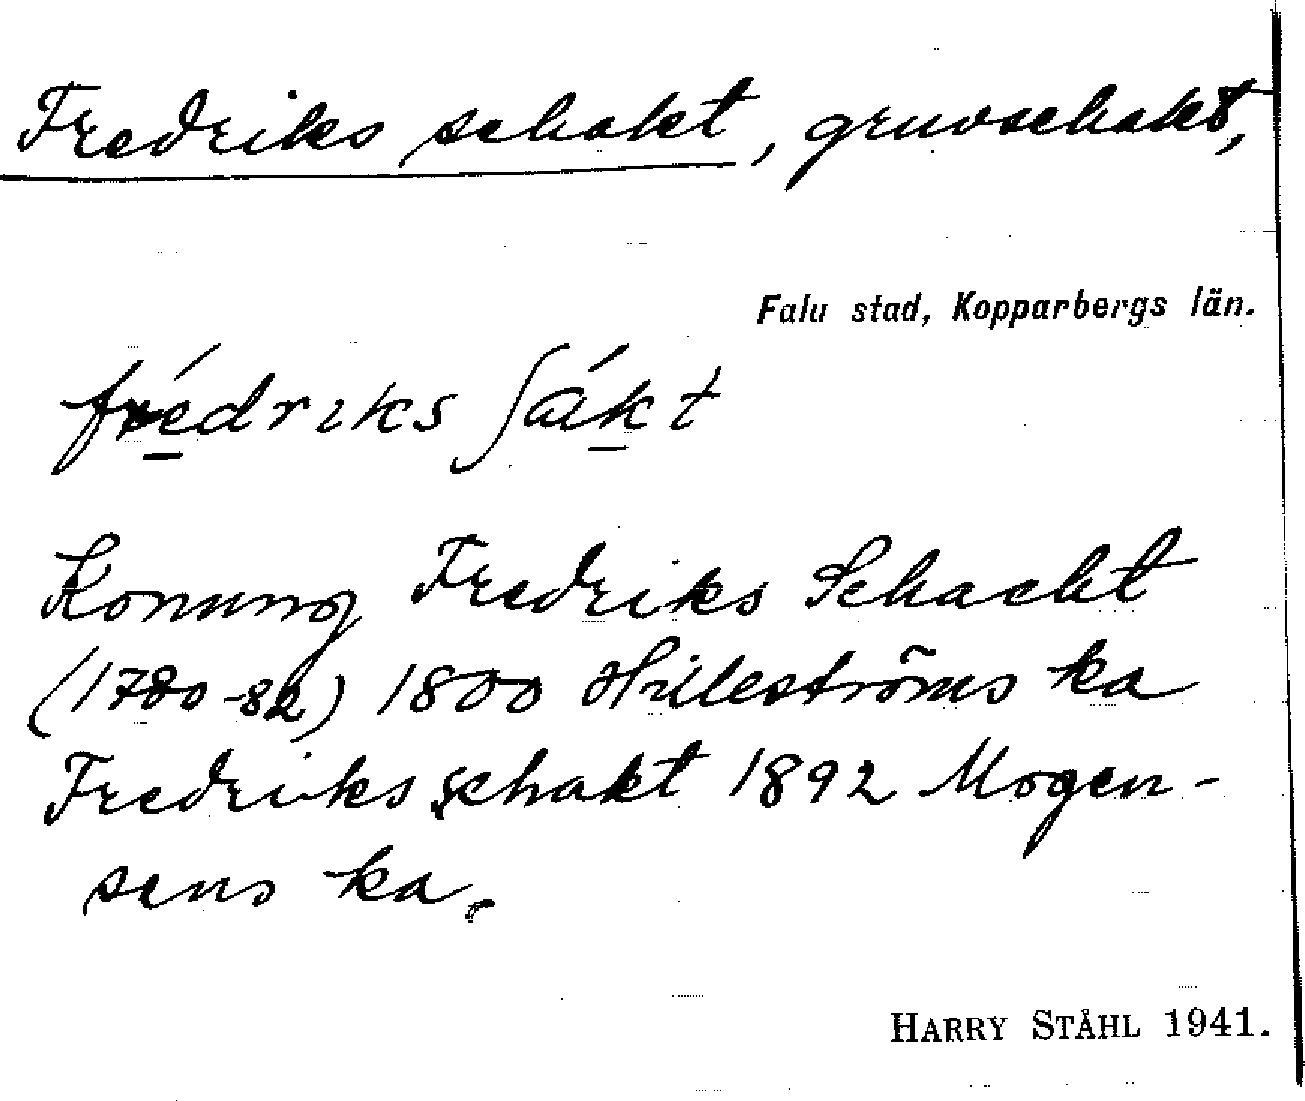 Fredriks schakt, gruvschakt,
Falu stad, Kopparbergs län.
frédriks ʃákt
Konung Fredriks Schacht
(1780-82) 1800 Hilleströms ka
Fredriks schakt 1892 Mogen-
sens ka.
HARRY STÅHL 1941.